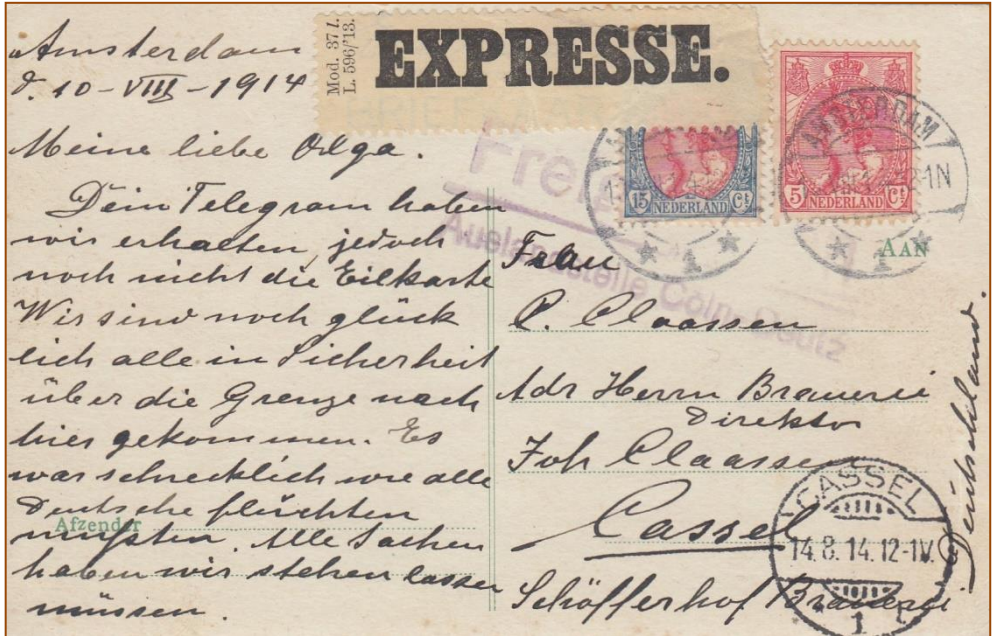 Mod. 37 l.
L. 596/'13.
EXPRESSE.
Amsterdam
d. 10-VIII-1914
Meine liebe Olga.
Dein Telegram haben
wir erhalten, jedoch
noch nicht die Eilkarte
Wir sind noch glück
lich alle in Sicherheit
über die Grenze nach
hier gekommen. Es
war schrecklich wie alle
Deutsche flüchten
mußten. Alle Sachen
haben wir stehen lassen
müssen.
Afzender
15 Ct
NEDERLAND
5 Ct
NEDERLAND
AMSTERDAM
1
Auslandstelle Cöln-Deutz
AAN
Frau
C. Claassen
Adr Herrn Brauerei
Direktor
Joh Claassen
Cassel
Schöfferhof Brauerei
Deutschland.
CASSEL
14.8.14.12-1N.
1